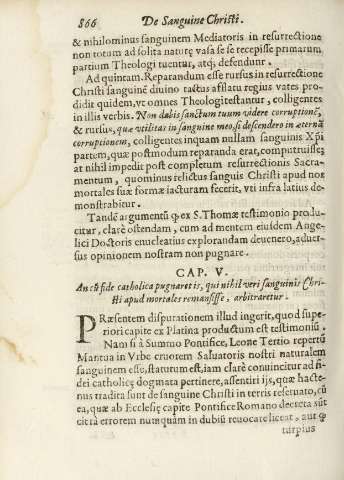 866 De Sanguine Christi.
& nihilominus sanguinem Mediatoris in resurrectione
non totum ad solita naturę vasa se se recepisse primarum
partium Theologi tuentur, atq; defendunt.
Ad quintam. Reparandum esse rursus in resurrectione
Christi sanguinē diuino tactus afflatu regius vates pro-
didit quidem, vt omnes Theologi testantur, colligentes
in illis verbis. Non dabis sanctum tuum videre corruptionē,
& rursus, quæ vtilitas in sanguine meo, si descendero in æternā
corruptionem, colligentes inquam nullam sanguinis Xp̄i
partem, quæ postmodum reparanda erat, computruisse;
at nihil impedit post completum resurrectionis Sacra-
mentum, quominus relictus sanguis Christi apud nos
mortales suæ formæ iacturam fecerit, vti infra latius de-
monstrabitur.
Tandē argumentū ꝙ ex S. Thomæ testimonio produ-
citur, clarè ostendam, cum ad mentem eiusdem Ange-
lici Doctoris enucleatius explorandam deuenero, aduer-
sus opinionem nostram non pugnare.
CAP. V.
An cū fide catholica pugnaret is, qui nihil veri sanguinis Chri-
sti apud mortales remansisse, arbitraretur.
PRæsentem disputationem illud ingerit, quod supe-
riori capite ex Platina productum est testimoniū.
Nam si à Summo Pontifice, Leone Tertio repertū
Mantua in Vrbe cruorem Saluatoris nostri naturalem
sanguinem esse, statutum est, iam clarè conuincitur ad fi-
dei catholicę dogmata pertinere, assentiri ijs, quæ hacte-
nus tradita sunt de sanguine Christi in terris reseruato, cū
ea, quæ ab Ecclesię capite Pontifice Romano decreta sūt
citrà errorem nunquam in dubiū reuocare liceat, aut ꝙ
turpius